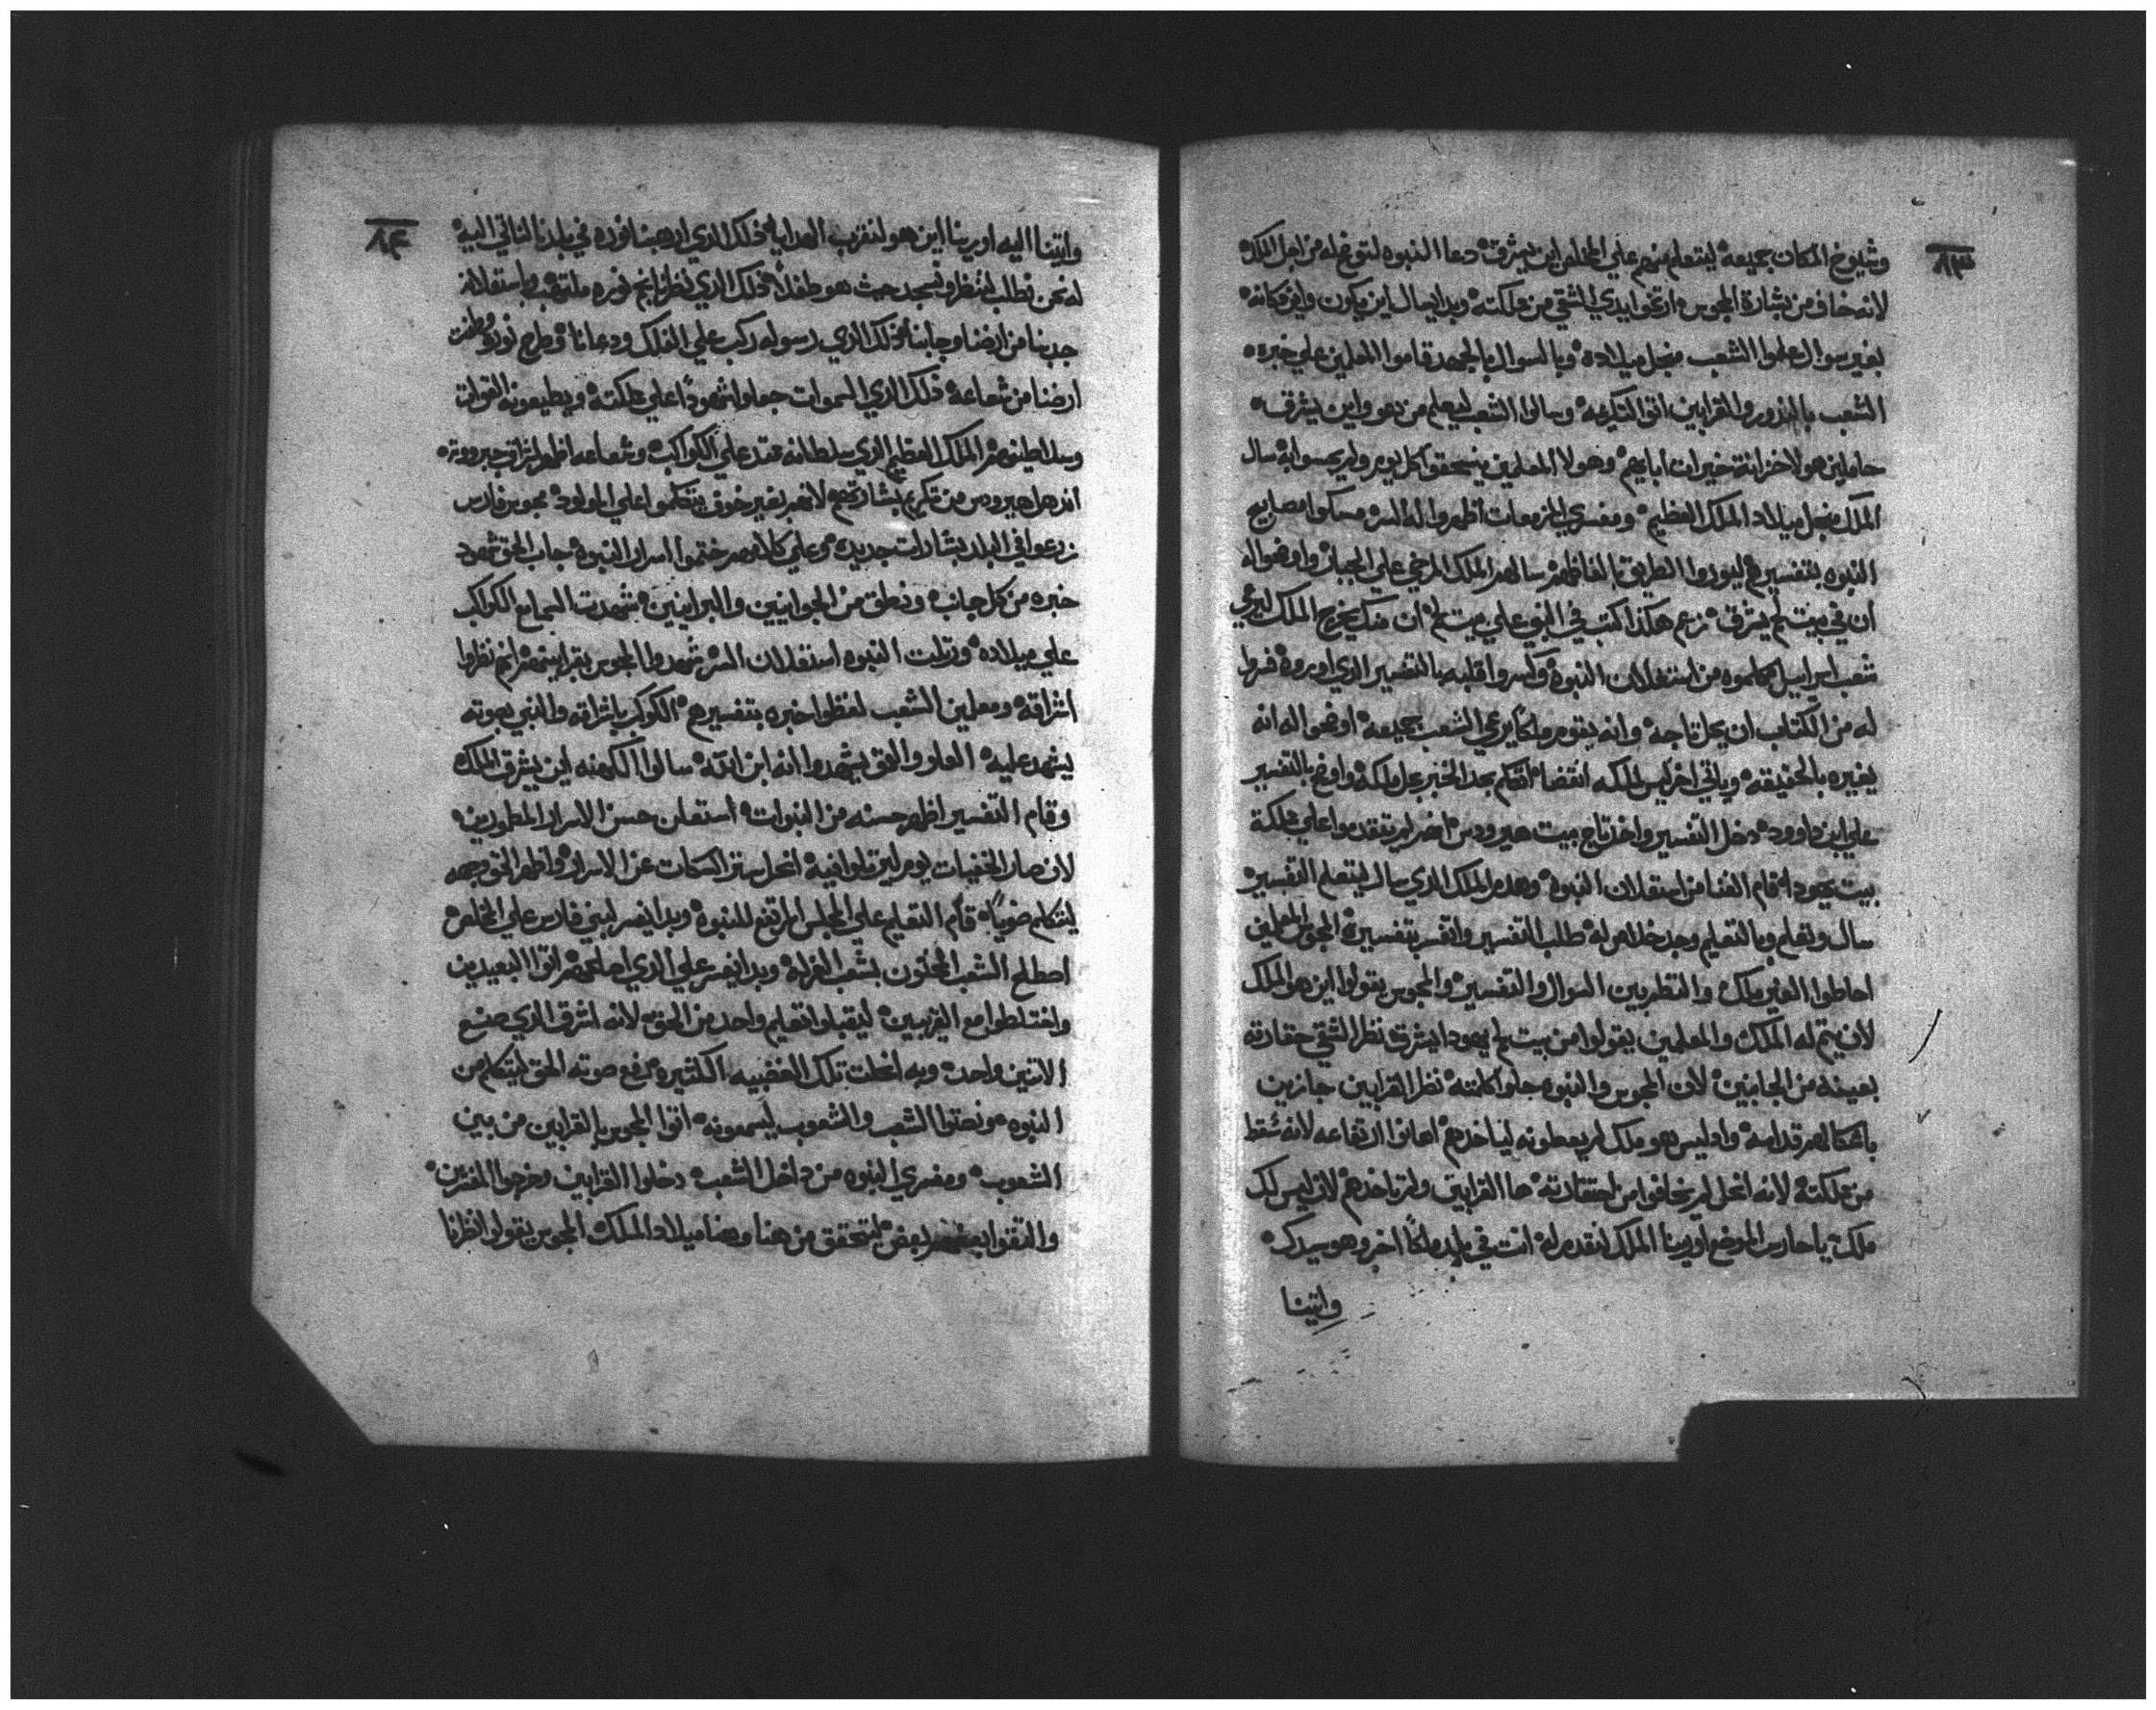 ٨٣
وشيوخ المكان جميعه ليتعلم منهم علي المخلص اين يشرق دعا النبوه لتوضح له من اجل الملك
لانه خاف من بشارة المجوس ارتخوا يدي الشقي من مملكته وبدا يسال اين يكون واين مكانه
بغير سوال تعلموا الشعب منجل ميلاده وبالسوال بالجهد قاموا المعلمين علي خبره
الشعب بالنذور والقرابين اتوا لتكريمه وسالوا الشعب ليعلم من هو واين يشرق
حاملين هولا خزانة خيرات ابايهم وهولا المعلمين يستحقوا كل يوم ولم يحسوا به سال
الملك منجل ميلاد الملك العظيم ومفسري المزمعات اظهروا له السر مسكوا مصابيح
النبوه بتفسيرهم ليوروا الطريق بالفاظهم سالهم الملك المرخي علي الجبار واوضحوا له
ان في بيت لحم يشرق نزعم هكذا كتب في النبي علي بيت لحم ان منك يخرج الملك ليرعي
شعب اسراييل كلموه من استعلان النبوه وكسروا قلبه بالتفسير الذي اوروه فسروا
له من الكتاب ان يحل تاجه وانه يقوم ملكا يرعي الشعب جميعه اوضحوا له انه
يغيره بالحقيقه وياتي اخر ليس لملكه انقضا افتكم بهذا الخبر بحل ملكه واوضح بالتفسير
علي ابن داوود دخل التفسير واخذ تاج بيت هيرودس انهم لم يتقدموا علي مملكة
بيت يهودا قام الفنا من استعلان النبوه وهدم الملك الذي سال ليتعلم التفسير
سال وتعلم وبالتعليم وجد خلاص له طلب التفسير وانفسد بتفسيره المجوس والمعلمين
احاطوا الغير ملك وانتظر بين السوال والتفسير والمجوس يقولوا اين هو الملك
لان يتم له الملك والمعلمين يقولوا من بيت لحم يهودا يشرق نظر الشقي حقارته
بعينه من الجانبين لان المجوس والنبوه حلوا كلمته نظر القرابين جازين
باشكالهم قدامه واد ليس هو ملك لم يعطونه لياخذهم اهانوا ارتفاعه لانه سقط
من مملكته لانه انحل لم يخافوا من احتقارته ها القرابين ولم تاخذهم لان ليس لك
ملك يا حارس الموضع اورينا الملك لنقدم له انت في بلد ملكا اخر وهو سيدك
واتينا
٨٤
واتينا اليه اورينا اين هو لنقرب الهدايا ذلك الذي ارهبنا نوره في بلدنا لناتي اليه
له نحن نطلب لننظر ونسجد حيث هو طفلا ذلك الذي نظرنا نجم نوره ملتهب وباستعلانه
جدبنا من ارضنا وجابنا ذلك الذي رسوله ركب علي الفلك ودعانا وطرح نوره وملت
ارضنا من شعاعه ذلك الذي السموات جعلوا شهودا علي مملكته ويطيعونه القوات
وسلاطينهم الملك العظيم الذي سلطانه عقد علي الكواكب وشعاعه اظهر اشراق جبروته
اندهل هيرودس من تكريم بشارتهم لانهم بغير خوف يتكلموا علي المولود مجوس فارس
زرعوا في البلد بشارات جديده وعلي كلامهم ختموا اسرار النبوه جاب الحق شهود
خبره من كل جانب ونطق من الجوانيين والبرانيين شهدت السما مع الكواكب
علي ميلاده ورتلت النبوه استعلان السر شهدوا المجوس بقرابينهم انهم نظروا
اشراقه ومعلمين الشعب لفظوا خبره بتفسيرهم الكوكب باشراقه والنبي بصوته
يشهد عليه العلو والعمق يشهدوا انه ابن الله سالوا الكهنه اين يشرق الملك
وقام التفسير اظهر حسنه من النبوات استعلن حسن الاسرار المطمورين
لان صار الخفيات يوم ليرتلوا فيه انحل ستر السكات عن الاسرار واظهر الحق وجهه
ليتكلم ضويا قام التعليم علي المجلس المرتفع للنبوه وبدا يفسر لبني فارس علي المخلص
اصطلح الشعب المختون بشعب الغرله وبدا يفسر علي الذي اصلحهم اتوا البعيدين
واختلطوا مع القريبين ليقبلوا تعليم واحد من الحق لانه اشرق الذي صنع
الاتنين واحد وبه انحلت تلك الغضبيه الكثيره رفع صوته الحق ليتكلم من
النبوه ونصتوا الشعب والشعوب ليسمعونه اتوا المجوس بالقرابين من بين
الشعوب ومفسري النبوه من داخل الشعب دخلوا القرابين وخرجوا المفسرين
والتقوا ببعضهم لبعض ليتحقق من هنا وهنا ميلاد الملك المجوس يقولوا نظرنا